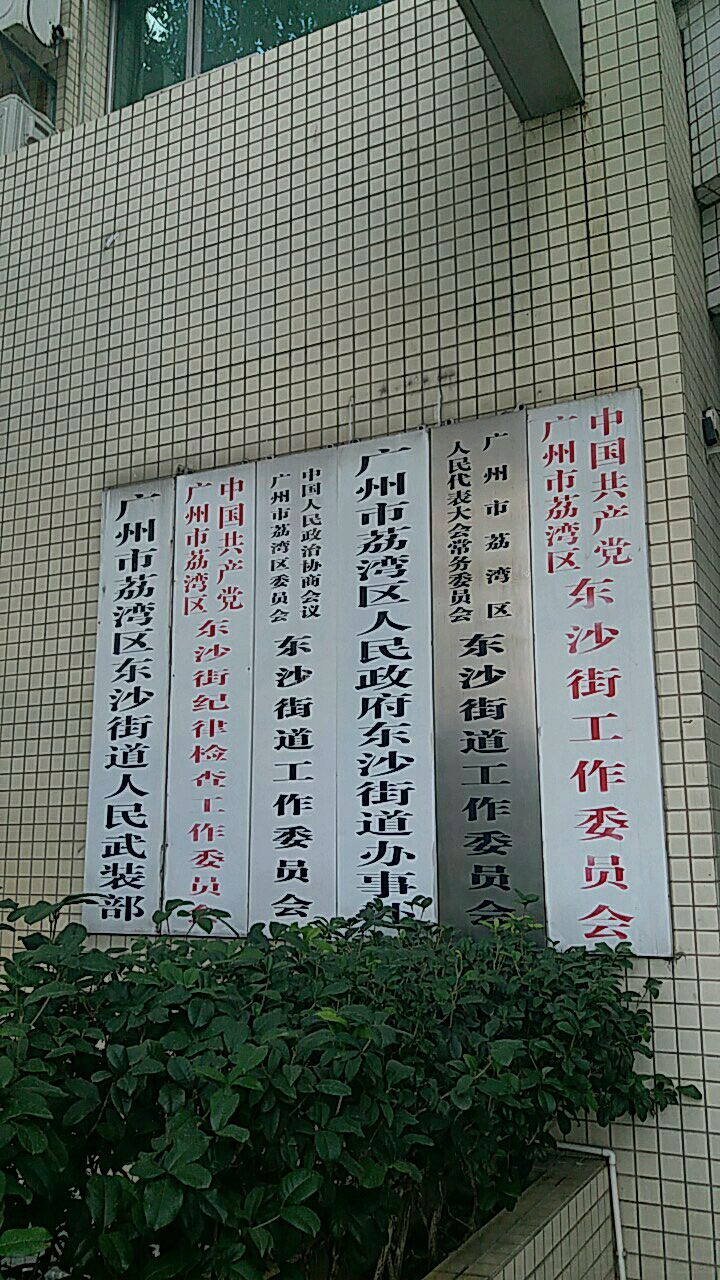 中国共产党
广州市荔湾区
东沙街工作委员会
广州市荔湾区
人民代表大会常务委员会
东沙街道工作委员会
广州市荔湾区人民政府东沙街道办事处
中国人民政治协商会议
广州市荔湾区委员会
东沙街道工作委员会
中国共产党
广州市荔湾区
东沙街纪律检查工作委员会
广州市荔湾区东沙街道人民武装部